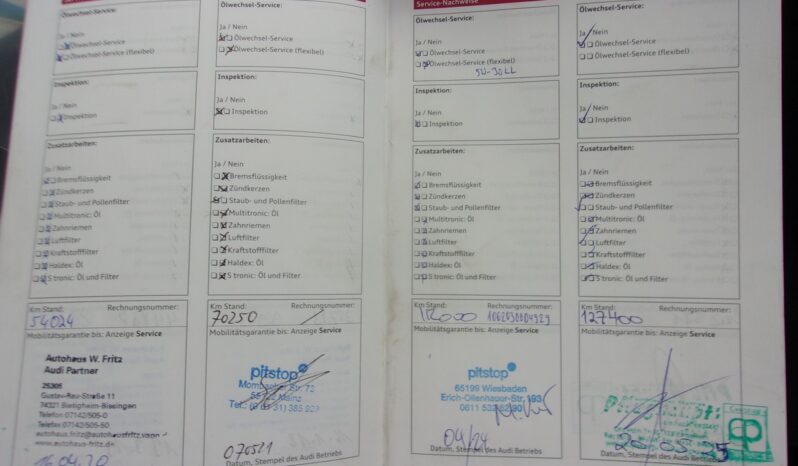 Service-Nachweise
Ölwechsel-Service:
Ja / Nein
Ölwechsel-Service
Ölwechsel-Service (flexibel)
Inspektion:
Ja / Nein
Inspektion
Zusatzarbeiten:
Ja / Nein
Bremsflüssigkeit
Zündkerzen
Staub- und Pollenfilter
Multitronic: Öl
Zahnriemen
Luftfilter
Kraftstofffilter
Haldex: Öl
S tronic: Öl und Filter
Km Stand: Rechnungsnummer:
54024
Mobilitätsgarantie bis: Anzeige Service
Autohaus W. Fritz
Audi Partner
25305
Gustav-Rau-Straße 11
74321 Bietigheim-Bissingen
Telefon 07142/505-0
Telefax 07142/505-50
www.autohaus-fritz.de
16.04.20
Ölwechsel-Service:
Ja / Nein
Ölwechsel-Service
Ölwechsel-Service (flexibel)
Inspektion:
Ja / Nein
Inspektion
Zusatzarbeiten:
Ja / Nein
Bremsflüssigkeit
Zündkerzen
Staub- und Pollenfilter
Multitronic: Öl
Zahnriemen
Luftfilter
Kraftstofffilter
Haldex: Öl
S tronic: Öl und Filter
Km Stand: Rechnungsnummer:
70250
Mobilitätsgarantie bis: Anzeige Service
pitstop
Str. 72
Mainz
Tel.:
070521
Datum, Stempel des Audi Betriebs
Ölwechsel-Service:
Ja / Nein
Ölwechsel-Service
Ölwechsel-Service (flexibel)
5W-30LL
Inspektion:
Ja / Nein
Inspektion
Zusatzarbeiten:
Ja / Nein
Bremsflüssigkeit
Zündkerzen
Staub- und Pollenfilter
Multitronic: Öl
Zahnriemen
Luftfilter
Kraftstofffilter
Haldex: Öl
S tronic: Öl und Filter
Km Stand: Rechnungsnummer:
Mobilitätsgarantie bis: Anzeige Service
pitstop
65199 Wiesbaden
Erich-Ollenhauer-Str. 193
04/24
Datum, Stempel des Audi Betriebs
Ölwechsel-Service:
Ja / Nein
Ölwechsel-Service
Ölwechsel-Service (flexibel)
Inspektion:
Ja / Nein
Inspektion
Zusatzarbeiten:
Ja / Nein
Bremsflüssigkeit
Zündkerzen
Staub- und Pollenfilter
Multitronic: Öl
Zahnriemen
Luftfilter
Kraftstofffilter
Haldex: Öl
S tronic: Öl und Filter
Km Stand: Rechnungsnummer:
127400
Mobilitätsgarantie bis: Anzeige Service
Datum, Stempel des Audi Betriebs